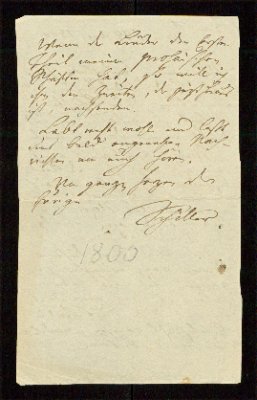 Wenn die Kinder den ersten
Theil meiner prosaischen
Schriften hat, so will ich
ihr den zweiten, der jetzt heraus
ist, nachsenden.
Lebt recht wohl und laßt
uns bald angenehme Nach-
richten von euch hören.
Von ganzem Herzen der
Eurige
Schiller
1800